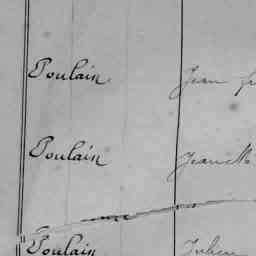 Poulain Jean fr
Poulain Jean M
Poulain Julien